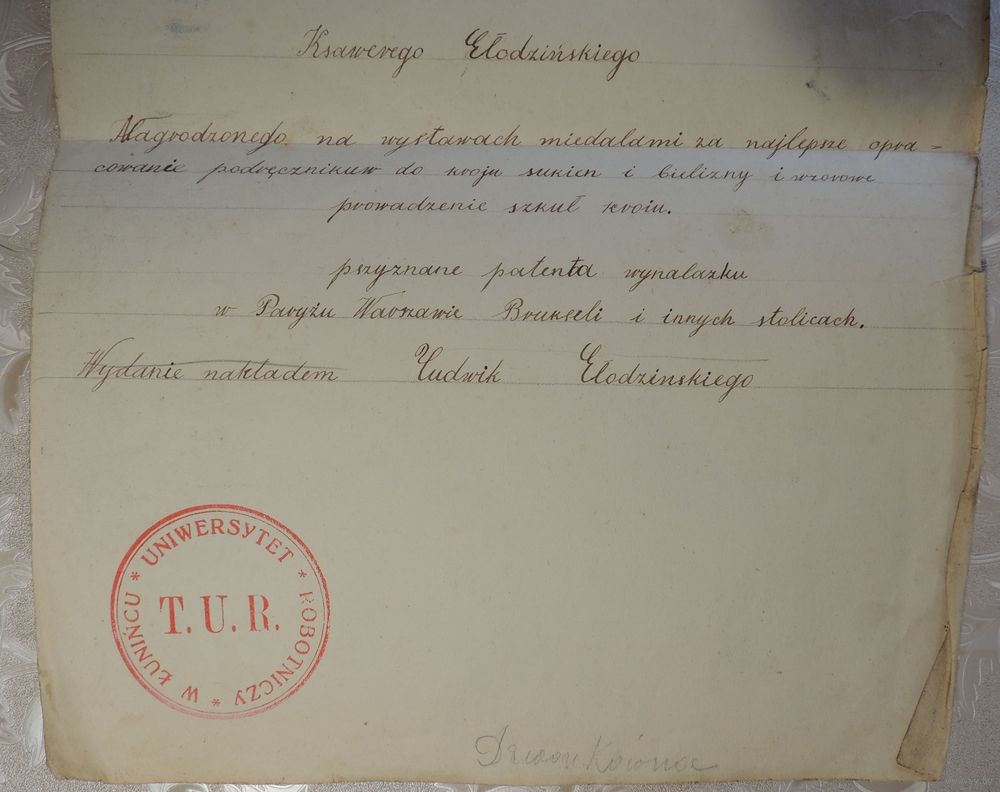 Ksawerego Głodzińskiego
Nagrodzonego na wystawach miedalami za najlepsze opra=
cowanie podręcznikuw do kroju sukien i bielizny i wzorowe
prowadzenie szkuł kroiu.
pszyznane patenta wynalazku
w Paryżu Warszawie Brukseli i innych stolicach.
Wydanie nakładem Ludwik Głodzinskiego
* UNIWERSYTET * ROBOTNICZY * W ŁUNIŃCU
T.U.R.